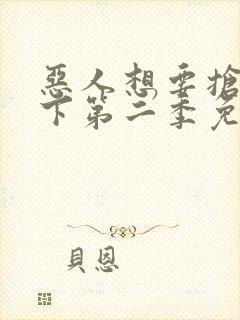 惡人想要搶
下第二季免
貝恩